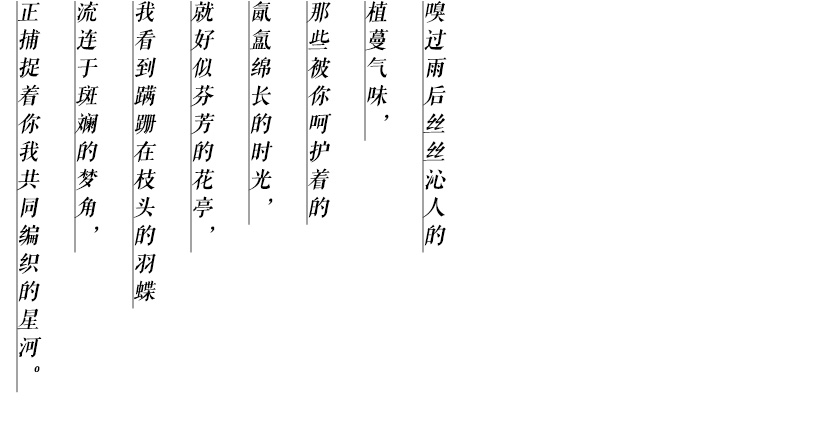 嗅过雨后丝丝沁人的
植蔓气味，
那些被你呵护着的
氤氲绵长的时光，
就好似芬芳的花亭，
我看到蹒跚在枝头的羽蝶
流连于斑斓的梦角，
正捕捉着你我共同编织的星河。